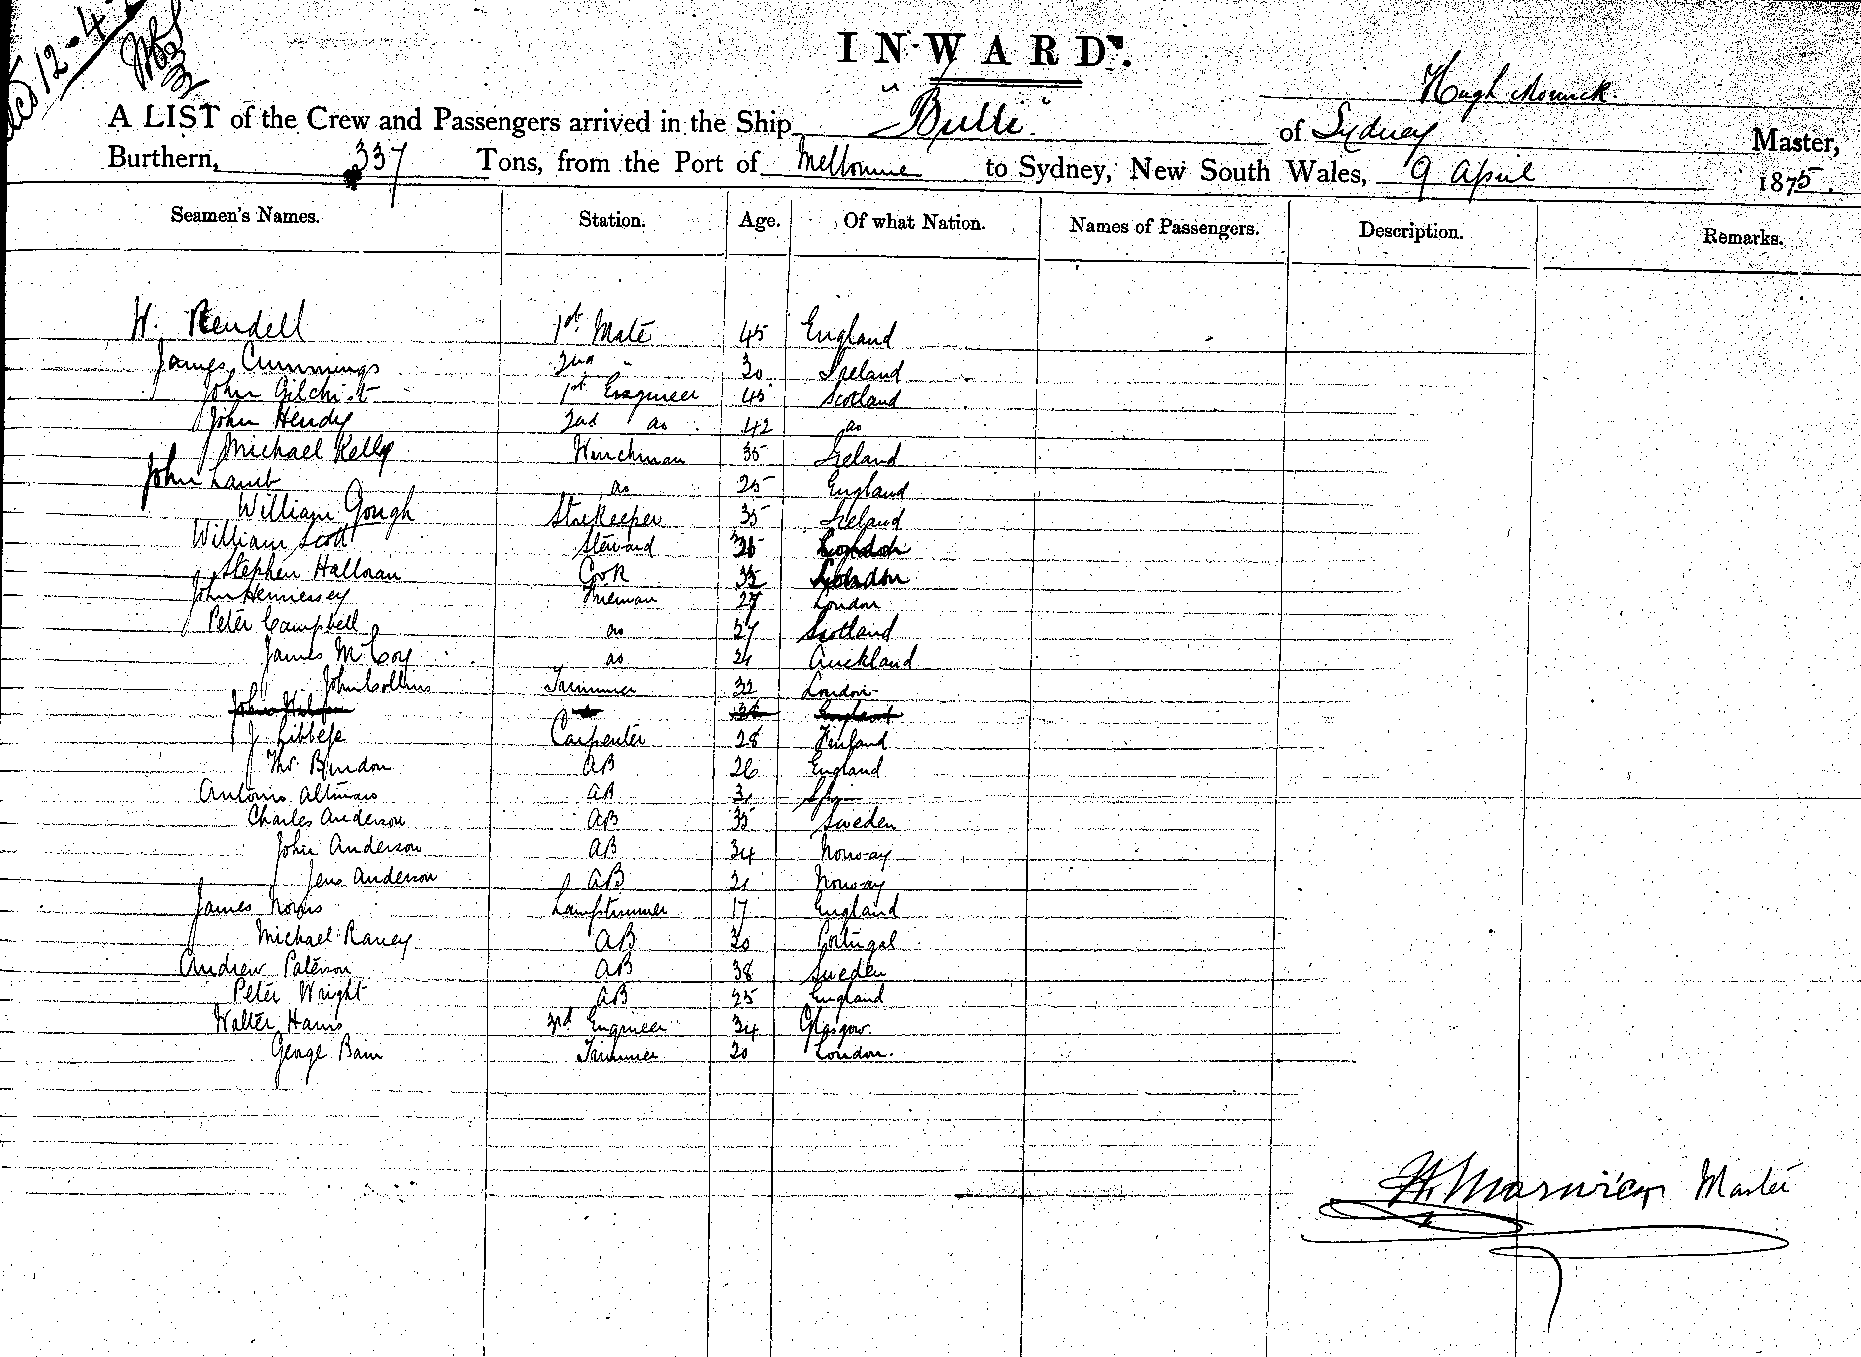 INWARD.
Hugh
A LIST of the Crew and Passengers arrived in the Ship "Bulli" of Sydney Master,
Burthern, 337 Tons, from the Port of Melbourne to Sydney, New South Wales, 9 April 1875.
Seamen's Names. Station. Age. Of what Nation. Names of Passengers. Description. Remarks.
H. Rendell 1st Mate 45 England
James Cummings 2nd " 30 Ireland
John Gilchrist 1st Engineer 45 Scotland
John Hendy 2nd do 42 do
Michael Kelly Winchman 35 Ireland
John Lamb do 25 England
William Gough Storekeeper 35 Ireland
William Scott Steward London
Stephen Hallman Cook 35 London
John Hennessey Fireman 27 London
Peter Campbell do 27 Scotland
James McCoy do 24 Auckland
John Collins Trimmer 32 London
John England
J Carpenter 28 Finland
Thos Bindon AB 26 England
Antonio Altimas AB
Charles Anderson AB 35 Sweden
John Anderson AB 34 Norway
Jens Anderson AB 21 Norway
James Norris Lamptrimmer 17 England
Michael Raney AB 30 Portugal
Andrew Paterson AB 38 Sweden
Peter Wright AB 25 England
Walter Harris 3rd Engineer 34 Glasgow.
George Bain Trimmer 20 London.
H. Marwick Master